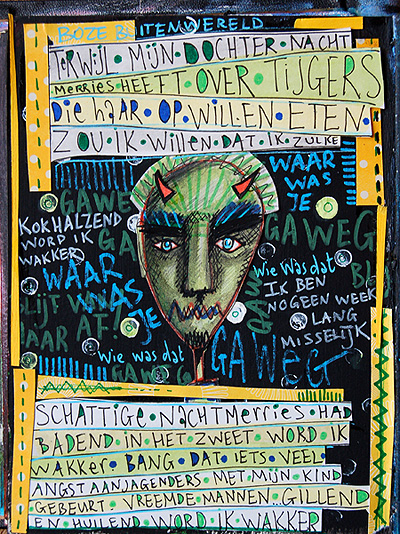 BOZE BUITENWERELD
TERWIJL • MIJN • DOCHTER • NACHT
MERRIES • HEEFT • OVER • TIJGERS
DIE HAAR • OP • WILLEN • ETEN •
ZOU • IK • WILLEN • DAT • IK • ZULKE
WAAR
WAS
JE
GAWEG
KOKHALZEND
WORD IK
WAKKER
GAWEG
WAAR
WAS
JE
Wie was dat
IK BEN
NOG EEN WEEK
LANG
MISSELIJK
BLIJF
DAAR AF!
GAWEG
Wie was dat
GAWEG
GAWEG
SCHATTIGE • NACHTMERRIES • HAD
BADEND • IN • HET • ZWEET • WORD • IK
WAKKER • BANG • DAT • IETS • VEEL
ANGSTAANJAGENDERS • MET • MIJN • KIND
GEBEURT • VREEMDE • MANNEN . GILLEND
EN • HUILEND • WORD • IK • WAKKER